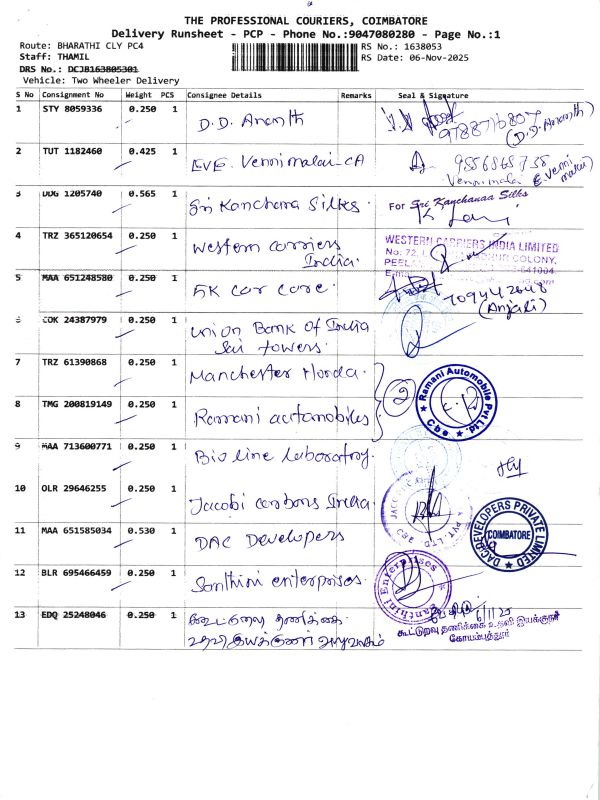 THE PROFESSIONAL COURIERS, COIMBATORE
Delivery Runsheet - PCP - Phone No.:9047080280 - Page No.:1
Route: BHARATHI CLY PC4
RS No.: 1638053
Staff: THAMIL
RS Date: 06-Nov-2025
DRS No.: DCJB163805301
Vehicle: Two Wheeler Delivery
S No Consignment No Weight PCS Consignee Details Remarks Seal & Signature
1 STY 8059336 0.250 1 D.D. Ananth
9788716807
(D.D. Ananth)
2 TUT 1182460 0.425 1 EVE. Vennimalai-CA
9556868738
Vennimalai
3 DDG 1205740 0.565 1 Sri Kanchana Silks.
For Sri Kanchanaa Silks
4 TRZ 365120654 0.250 1 Western carriers
India.
WESTERN CARRIERS INDIA LIMITED
No: 72,
COLONY,
PEELA
641004
5 MAA 651248580 0.250 1 AK car care.
7094442648
(Anjali)
6 COK 24387979 0.250 1 Union Bank of India
Sai towers.
7 TRZ 61390868 0.250 1 Manchester Honda.
2
Ramani Automobile Pvt Ltd
Cbe
8 TMG 200819149 0.250 1 Ramani automobiles
9 MAA 713600771 0.250 1 Bio line laboratory.
10 OLR 29646255 0.250 1 Jacobi carbons India.
PVT. LTD.
11 MAA 651585034 0.530 1 DAC Developers
DAC DEVELOPERS PRIVATE LIMITED
COIMBATORE
12 BLR 695466459 0.250 1 Santhini enterprises.
Santhini Enterprises
13 EDQ 25248046 0.250 1 கூட்டுறவு தணிக்கை
உதவி இயக்குனர் அலுவலகம்
6/11/25
கூட்டுறவு தணிக்கை உதவி இயக்குனர்
கோயம்புத்தூர்